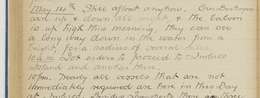 May 30th Still afloat anyhow. Our Destroyers
are up & down all night, & the baloon
is up high this morning, they can see
a long way down in the water from a
height, for a radius of several miles.
10 a.m. Got orders to proceed to Imbros
Island and anchor there
10 pm. Nearly all vessels that are not
immediately required are here in this Bay
at Imbros.